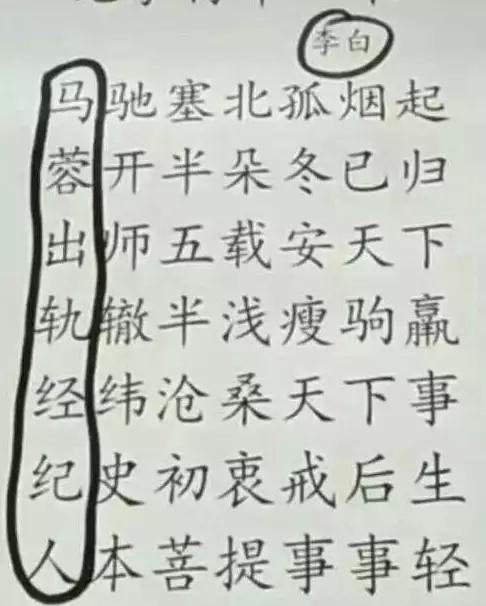 李白
马驰塞北孤烟起
蓉开半朵冬已归
出师五载安天下
轨辙半浅瘦驹羸
经纬沧桑天下事
纪史初衷戒后生
人本菩提事事轻